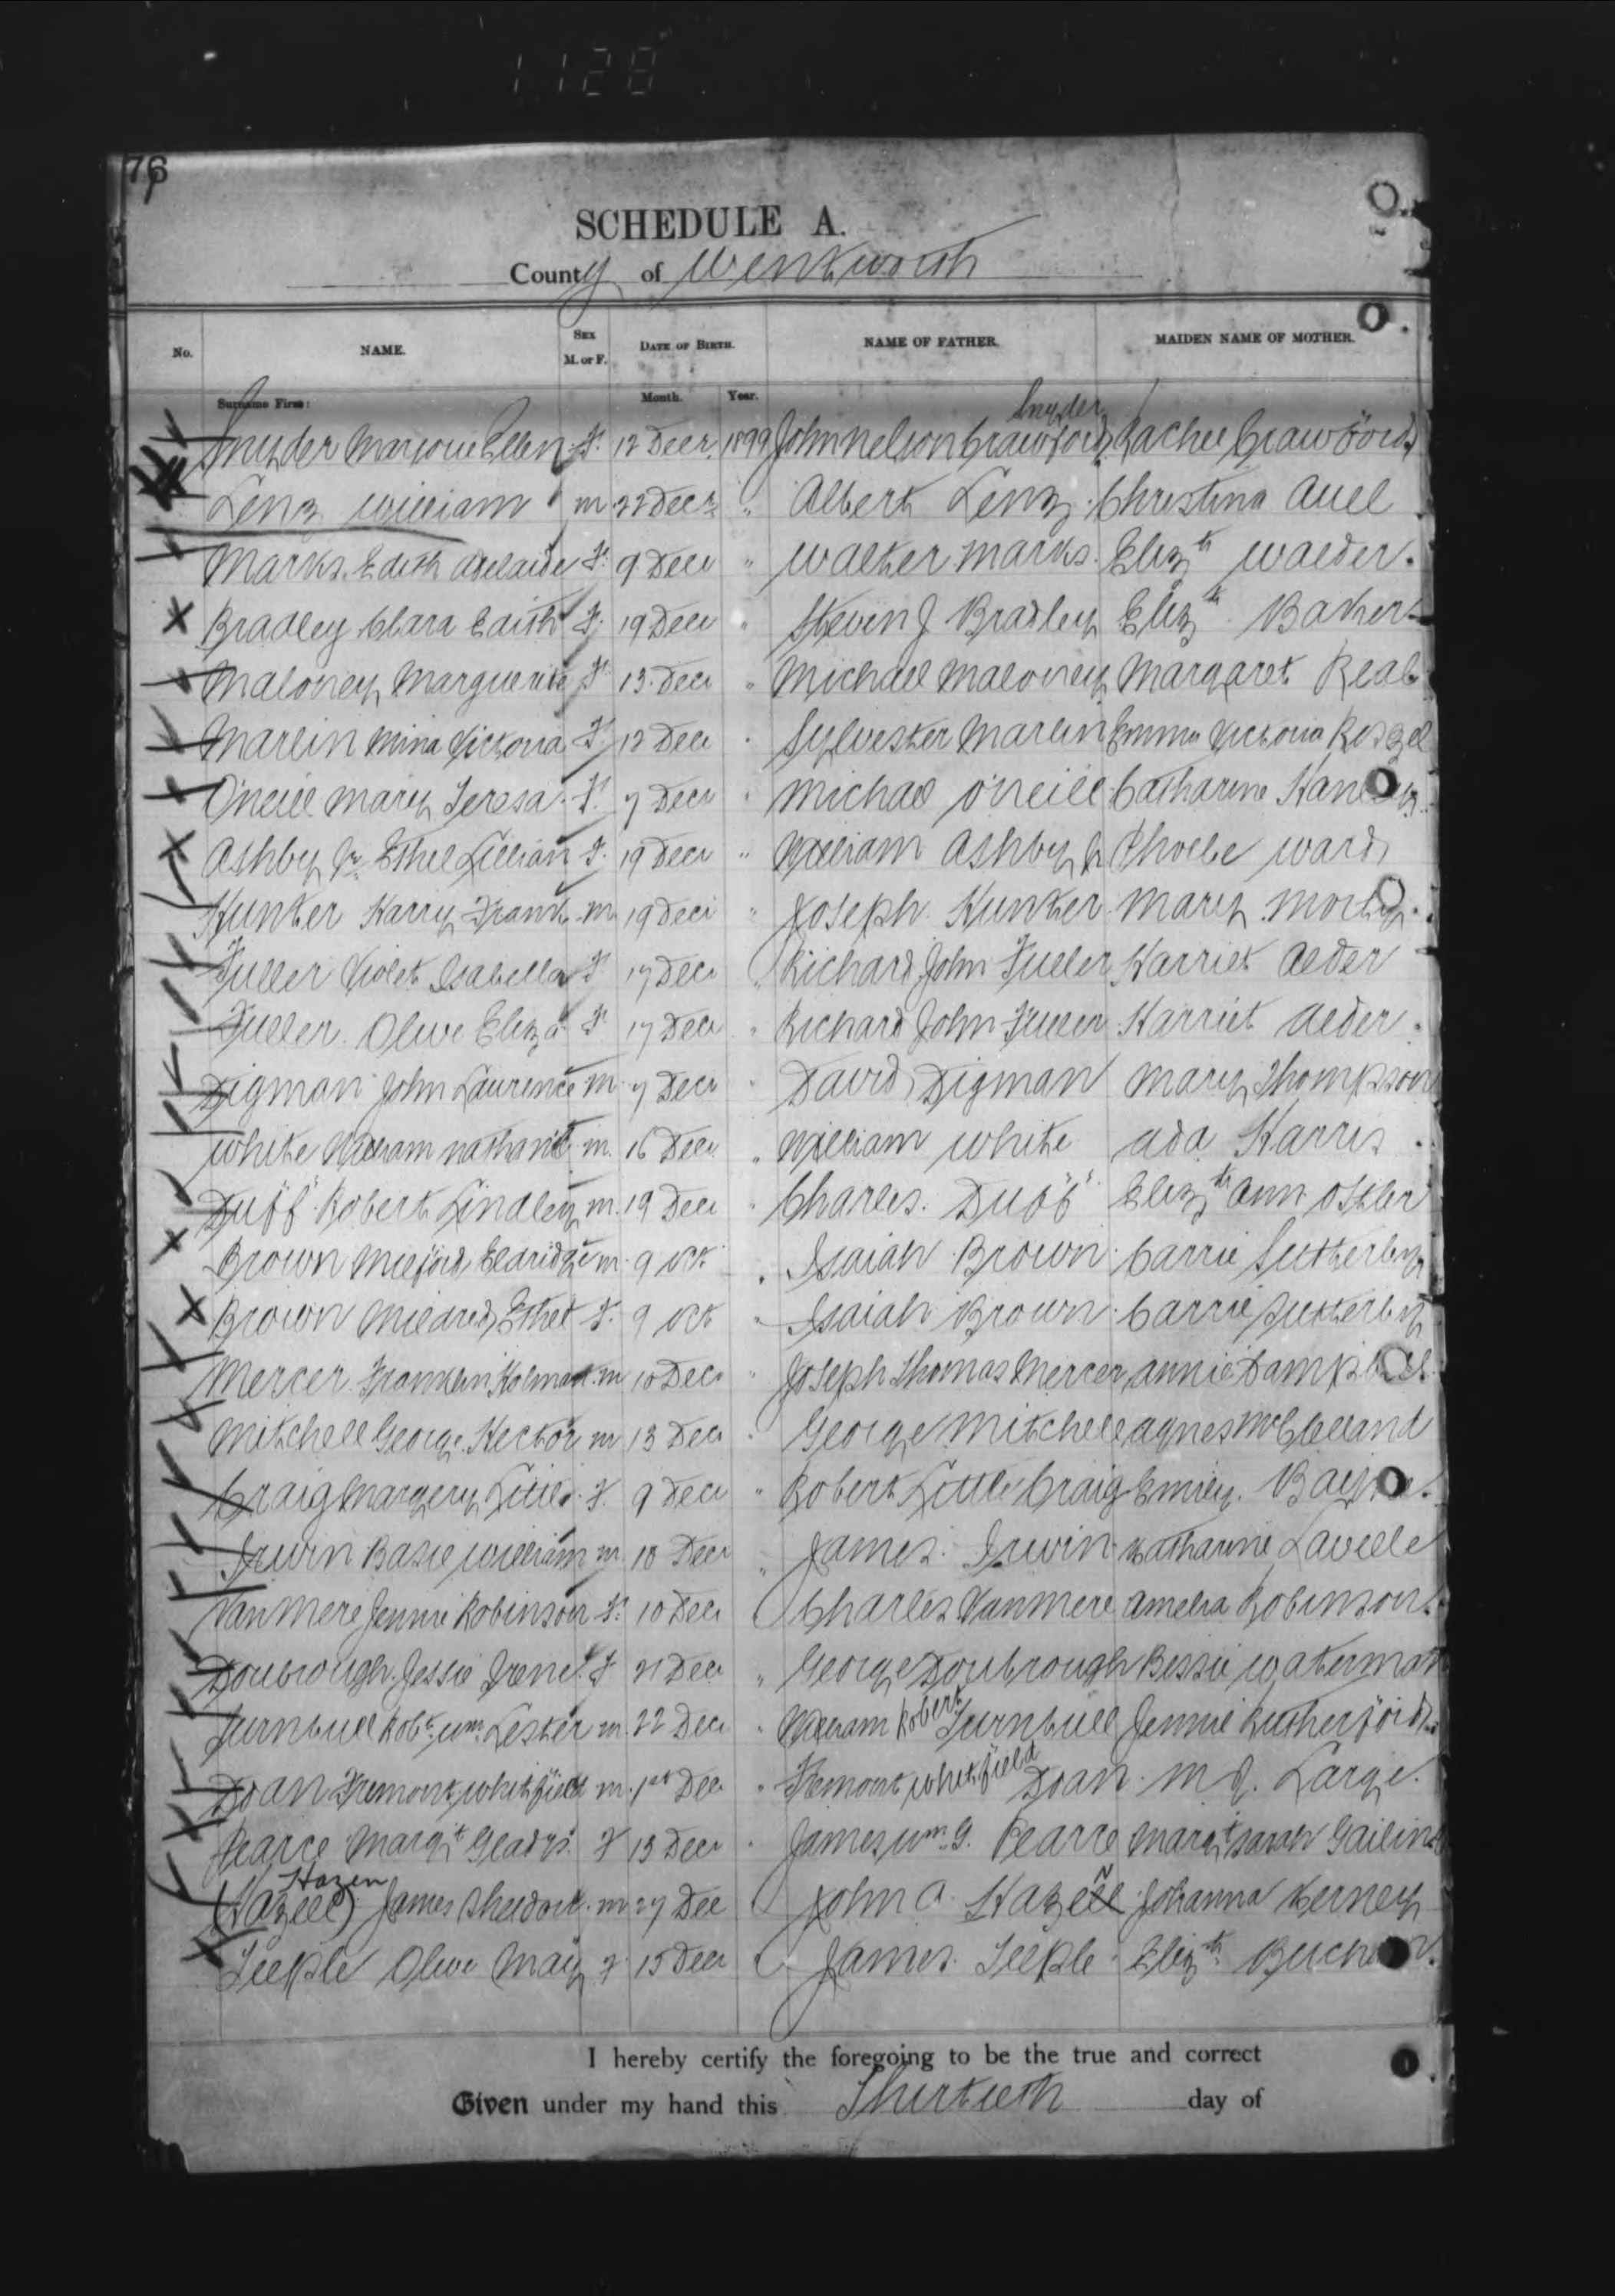 1128
76
SCHEDULE A.
County of Wentworth
No. NAME. SEX M. or F. DATE OF BIRTH. NAME OF FATHER. MAIDEN NAME OF MOTHER.
Surname First: Month. Year.
Snyder
Snyder Marjorie Ellen F. 12 Decr. 1899 John Nelson Crawford Rachel Crawford
Lenz William m 22 Decr " Albert Lenz Christina Auel
Marks Edith Adelaide F. 9 Decr " Walter Marks. Elizth Walder.
Bradley Clara Edith F. 19 Decr " Steven J Bradley Elizth Barker
Maloney Marguerite F. 13 Decr " Michael Maloney Margaret
Marlin Mina Victoria F 12 Decr " Sylvester Marlin Emma Victoria
O'Neill Mary Teresa F. 7 Decr " Michael O'Neill Catharine
Ashby Jr. Ethel Lillian F. 19 Decr " William Ashby Jr Phoebe Ward
Hunter Harry Frank m. 19 Decr " Joseph Hunter Mary
Fuller Violet Isabella F 17 Decr " Richard John Fuller Harriet Alder
Fuller Olive Eliza F 17 Decr " Richard John Fuller Harriet Alder.
Digman John Laurence m 7 Decr " David Digman Mary Thompson
White William Nathan'l m. 16 Decr " William White Ada Harris
Duff Robert Lindley m. 19 Decr " Charles. Duff Elizth Ann Ostler
Brown Milford Elaridge m. 9 Oct " Isaiah Brown Carrie Sutterby
Brown Mildred Ethel F. 9 Oct " Isaiah Brown Carrie Sutterby
Mercer Franklin Holman m 10 Decr " Joseph Thomas Mercer Annie
Mitchell George Hector m 13 Decr " George Mitchell Agnes McClelland
Craig Margery Little F. 9 Decr " Robert Little Craig Emily.
Irwin William m 18 Decr " James Irwin Katharine Lavelle
Van Mere Jennie Robinson F. 10 Decr " Charles Vanmere Amelia Robinson
Doubrough Jessie Irene F 21 Decr " George Doubrough Bessie Waterman
Turnbull Robt. Wm. Lester m. 22 Decr " William Robert Turnbull Jennie Rutherford
Doan Fremont Whitfield m. 1st Dec " Fremont Whitfield Doan M J. Large.
Pearce Margt Gladys F 13 Decr " James Wm. G. Pearce Margt Sarah
Hazen
(Hazell) James m 27 Dec " John A. Hazell Johanna Kerney
Teeple Olive May F 15 Decr " James Teeple Elizth
I hereby certify the foregoing to be the true and correct
Given under my hand this Thirtieth day of